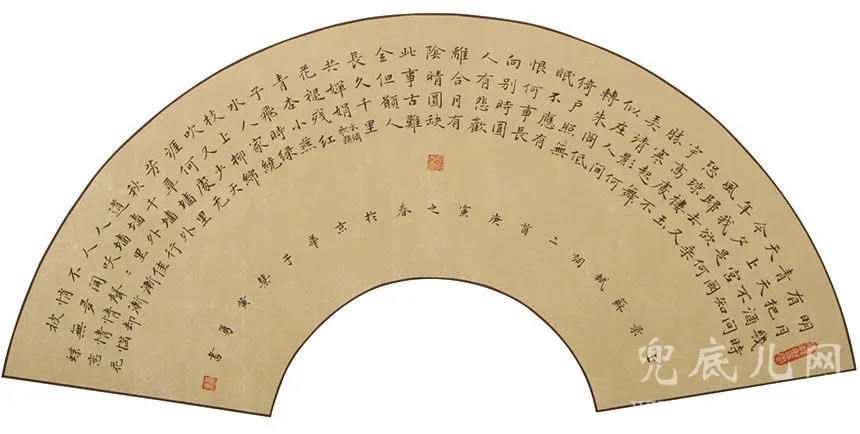 明月幾時
有把酒問
青天不知
天上宮闕
今夕是何
年我欲乘
風歸去又
恐瓊樓玉
宇高處不
勝寒起舞
弄清影何
似在人間
轉朱閣低
綺戶照無
眠不應有
恨何事長
向別時圓
人有悲歡
離合月有
陰晴圓缺
此事古難
全但願人
長久千里
共嬋娟 水調歌頭
花褪残紅
青杏小燕
子飛時绿
水人家繞
枝上柳綿
吹又少天
涯何處無
芳草墻里
秋千墻外
道墻外行
人墻里佳
人咲:漸
不聞聲漸
悄多情却
被無情惱
蝶戀花
錄蘇軾詞二首庚寅之春於京華子琹黃勇書
兜底儿网